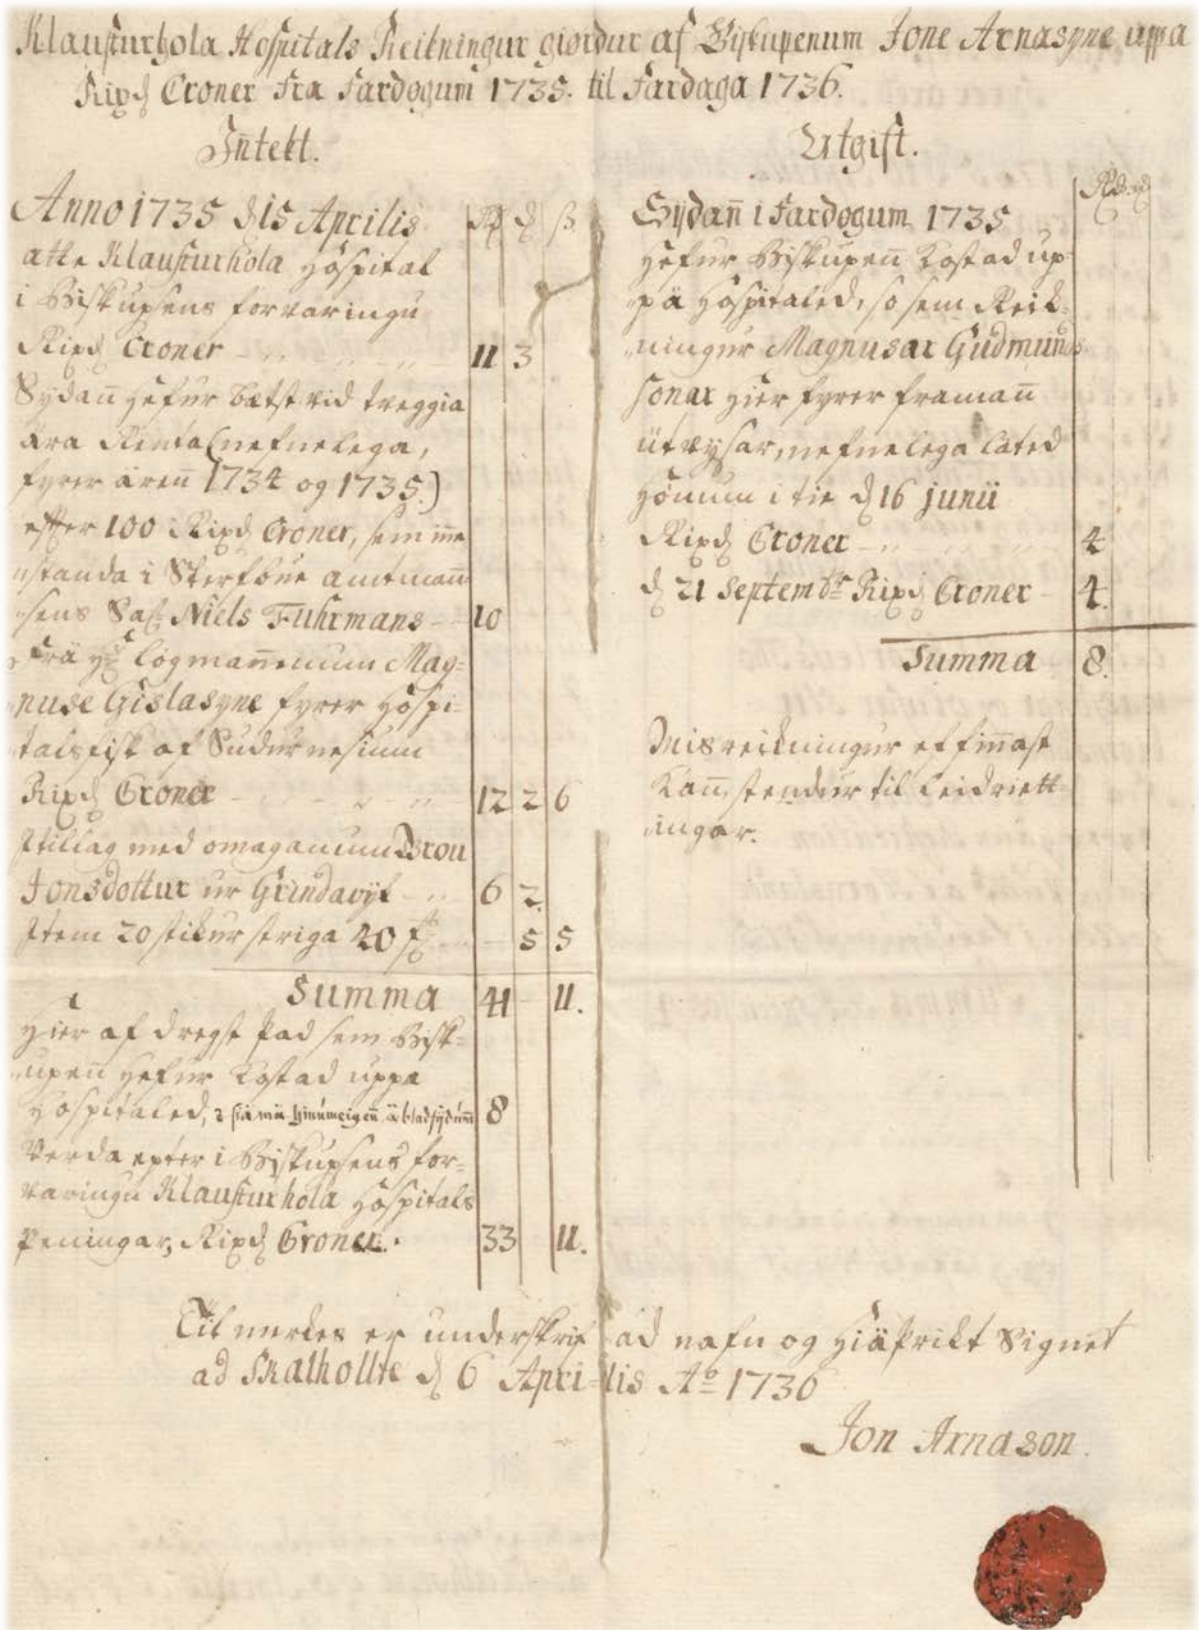 Klausturhola Hospitals Reikningur giørdur af Biskupenum Jone Arnasyne uppa
Rixd Croner Fra Fardøgum 1735. til Fardaga 1736.
Jntekt.
Anno 1735 d 15 Aprilis Rd d ß.
atte Klausturhola Hospital
i Biskupsens forvaringu
Rixd Croner 11 3
Sydañ hefur bætst vid tveggia
ära Renta (nefnelega,
fyrer äreñ 1734 og 1735.)
effter 100 Rixd Croner, sem iñe
standa i Sterfbue Amtmañ
sens Sal. Niels Fuhrmans 10
Frä løgmañenum Mag=
nuse Gislasyne fyrer Hospi=
talsfisk af Sudurnesium
Rixd Croner 12 2 6
Jtillag med omaganum
Jonsdottur ur Grindavijk 6 2.
Jtem 20 stikur striga 20 5 5
Summa 41 11.
Hier af dregst þad sem Bisk=
upen hefur kostad uppa
Hospitaled, 8
Verda epter i Biskupsens for=
varingu Klausturhola Hospitals
peningar, Rixd Croner. 33 11.
Utgift.
Rd
Sydañ i Fardøgum 1735
hefur Biskupeñ kostad up=
pä Hospitaled, so sem Reik=
ningur Magnusar Gudmunds
sonar hier fyrer framañ
ütvysar, nefnelega lated
hönum i tie d 16 junii
Rixd Croner 4
d 21 Septembr Rixd Croner 4.
Summa 8.
Misreikningur ef fiñast
kañ, stendur til leidriett
ingar.
Til merkes er underskrifad nafn og hiäþrikt Signet
ad Skalhollte d 6 Aprilis Ao 1736
Jon Arnason.